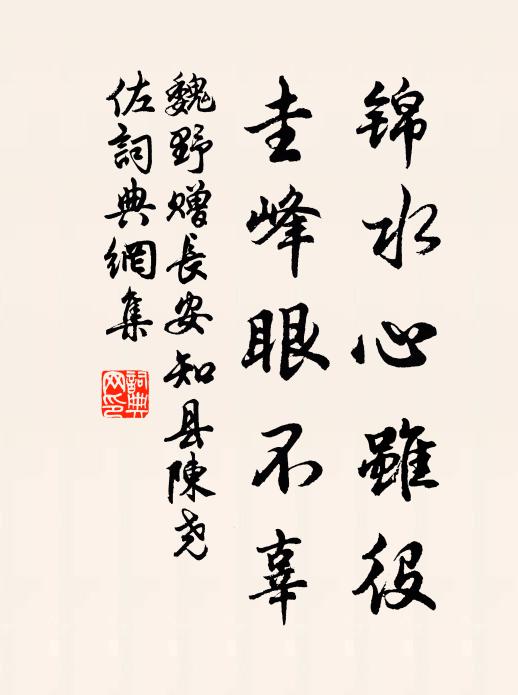 锦水心雖役
圭峰眼不辜
魏野赠長安知县陳尧
佐詞典網集
詞典网印